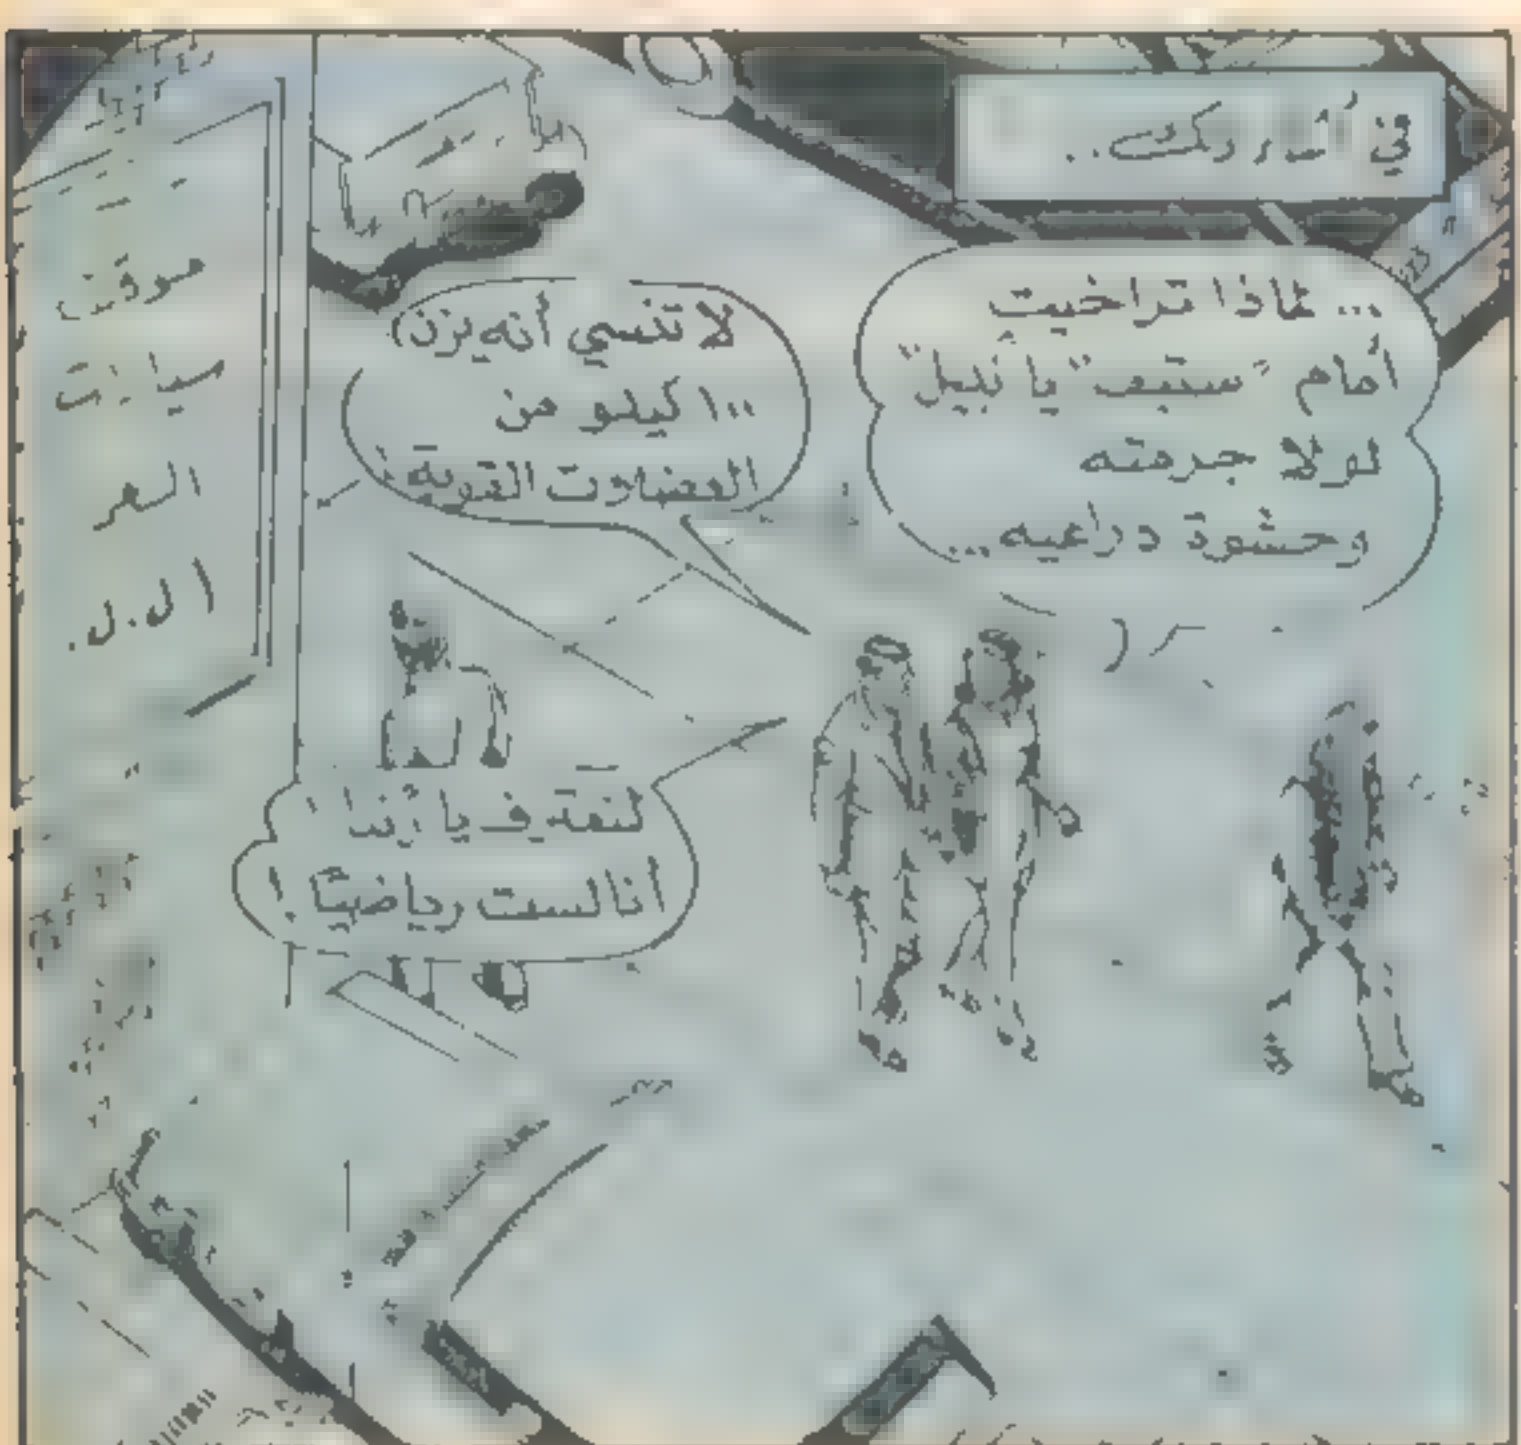 في أثناء ذلك..
... لماذا تراخيتِ
أمام "ستيف" يا نبيل"
لولا جرمته
وحشوة دراعيه...
لا تنسي أنه يزن
١٠٠ كيلو من
العضلات القوية!
لنعترف يا رندا!
أنا لست رياضيًا!
موقف
سيارات
السعر
ل.ل.